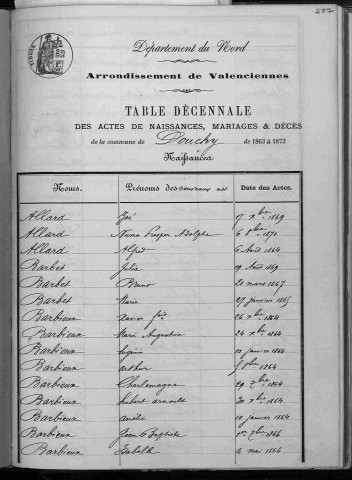 252
TIMBRE
Département du Nord
Arrondissement de Valenciennes
TABLE DÉCENNALE
DES ACTES DE NAISSANCES, MARIAGES & DÉCÈS
de la commune de Douchy de 1863 à 1873
Naissances
Noms. Prénoms des nouveaux nés Date des Actes.
Allard José 17 xbre 1869
Allard Numa Prosper Adolphe 6 8bre 1871
Allard Alfred 6 Août 1864
Barbet Julia 19 Août 1869
Barbet Bruno 21 mars 1867
Barbet Marie 27 janvier 1865
Barbieux Xavier fois 26 xbre 1864
Barbieux Marie Augustine 24 xbre 1864
Barbieux Eugénie 10 janvier 1864
Barbieux Arthur 5 8bre 1864
Barbieux Charlemagne 29 7bre 1864
Barbieux hubert arnould 30 xbre 1864
Barbieux amélie 10 janvier 1864
Barbieux Jean Baptiste 1er 7bre 1866
Barbieux Isabelle 4 mai 1866